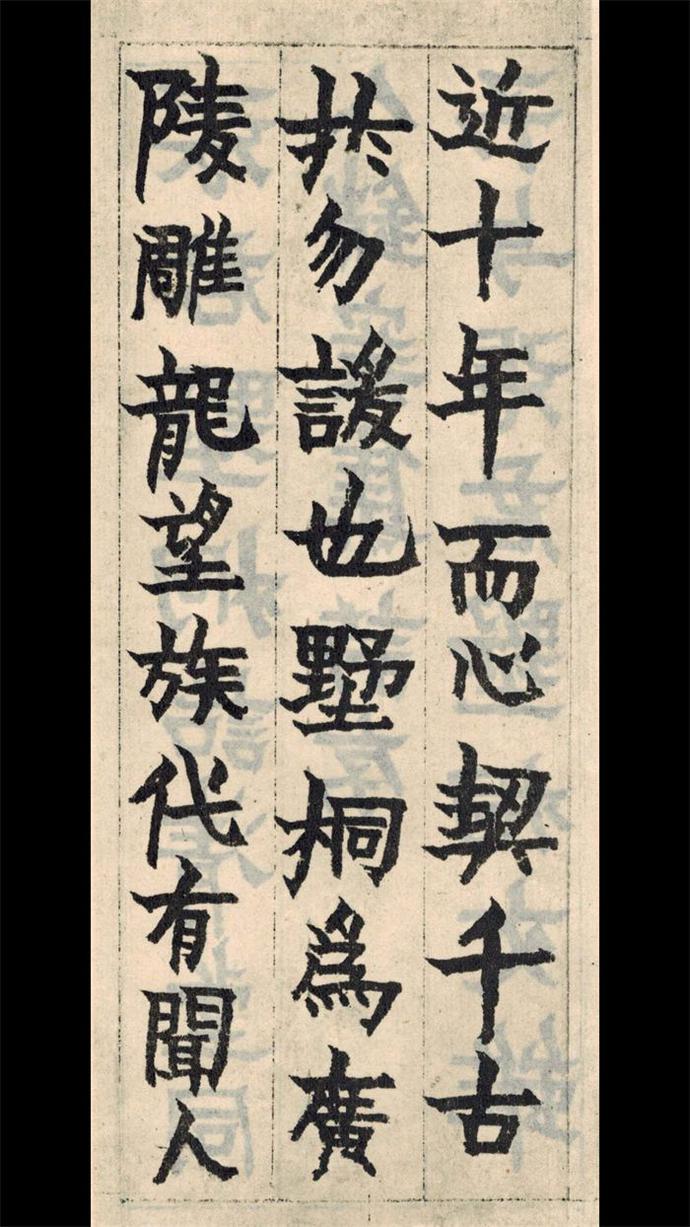 近十年而心契千古
扵勿諼也墅桐爲廣
陵雕龍望族代有聞人